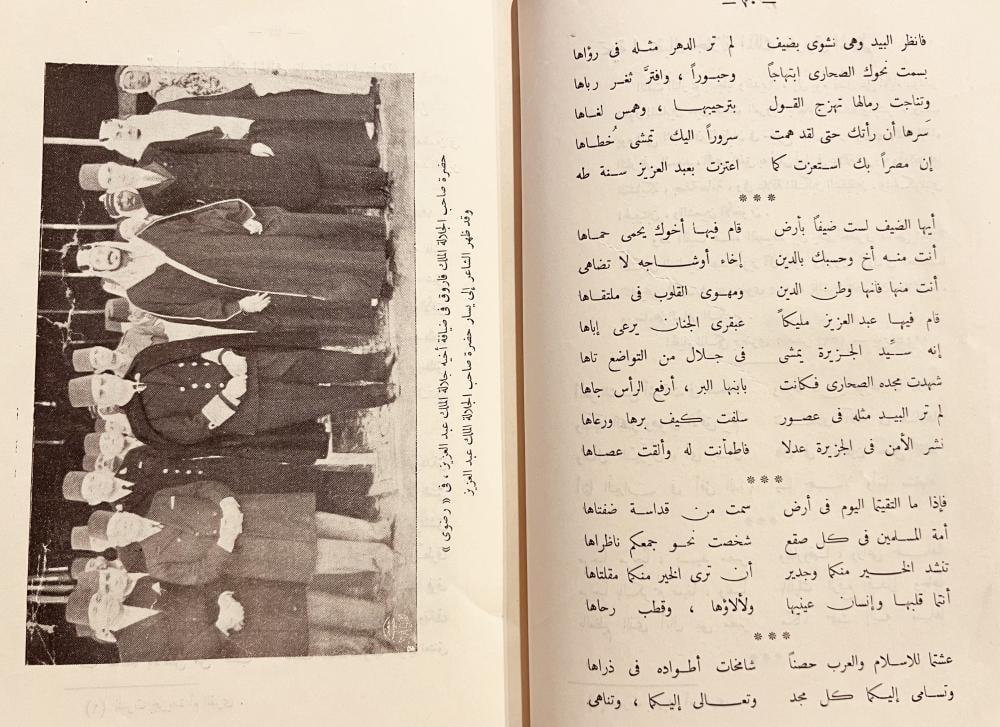 — ٣٠ —
فانظر البيد وهى نشوى بضيف لم تر الدهر مثله فى رؤاها
بسمت نحوك الصحارى ابتهاجاً وحبوراً ، وافترَّ ثغر رباها
وتناجت رمالها تهزج القول بترحيبها ، وهمس لغاها
سَرها أن رأتك حتى لقد همت سروراً اليك تمشى خُطاها
إن مصراً بك استعزت كما اعتزت بعبد العزيز سنة طه
***
أيها الضيف لست ضيفاً بأرض قام فيها أخوك يحمى حماها
أنت منه أخ وحسبك بالدين إخاء أوشاجه لا تضاهى
أنت منها فانها وطن الدين ومهوى القلوب فى ملتقاها
قام فيها عبد العزيز مليكاً عبقرى الجنان يرعى إباها
إنه سيِّد الجزيرة يمشى فى جلال من التواضع تاها
شهدت مجده الصحارى فكانت بابنها البر ، أرفع الرأس جاها
لم تر البيد مثله فى عصور سلفت كيف برها ورعاها
نشر الأمن فى الجزيرة عدلا فاطمأنت له وألقت عصاها
***
فإذا ما التقيتما اليوم فى أرض سمت من قداسة ضفتاها
أمة المسلمين فى كل صقع شخصت نحو جمعكم ناظراها
تنشد الخير منكما وجدير أن ترى الخير منكما مقلتاها
أنتما قلبها وإنسان عينيها ولألاؤها ، وقطب رحاها
***
عشتما للاسلام والعرب حصناً شامخات أطواده فى ذراها
وتسامى إليكما كل مجد وتعالى إليكما ، وتناهى
حضرة صاحب الجلالة الملك فاروق فى ضيافة أخيه جلالة الملك عبد العزيز ، فى « رضوى »
وقد ظهر الشاعر إلى يسار حضرة صاحب الجلالة الملك عبد العزيز